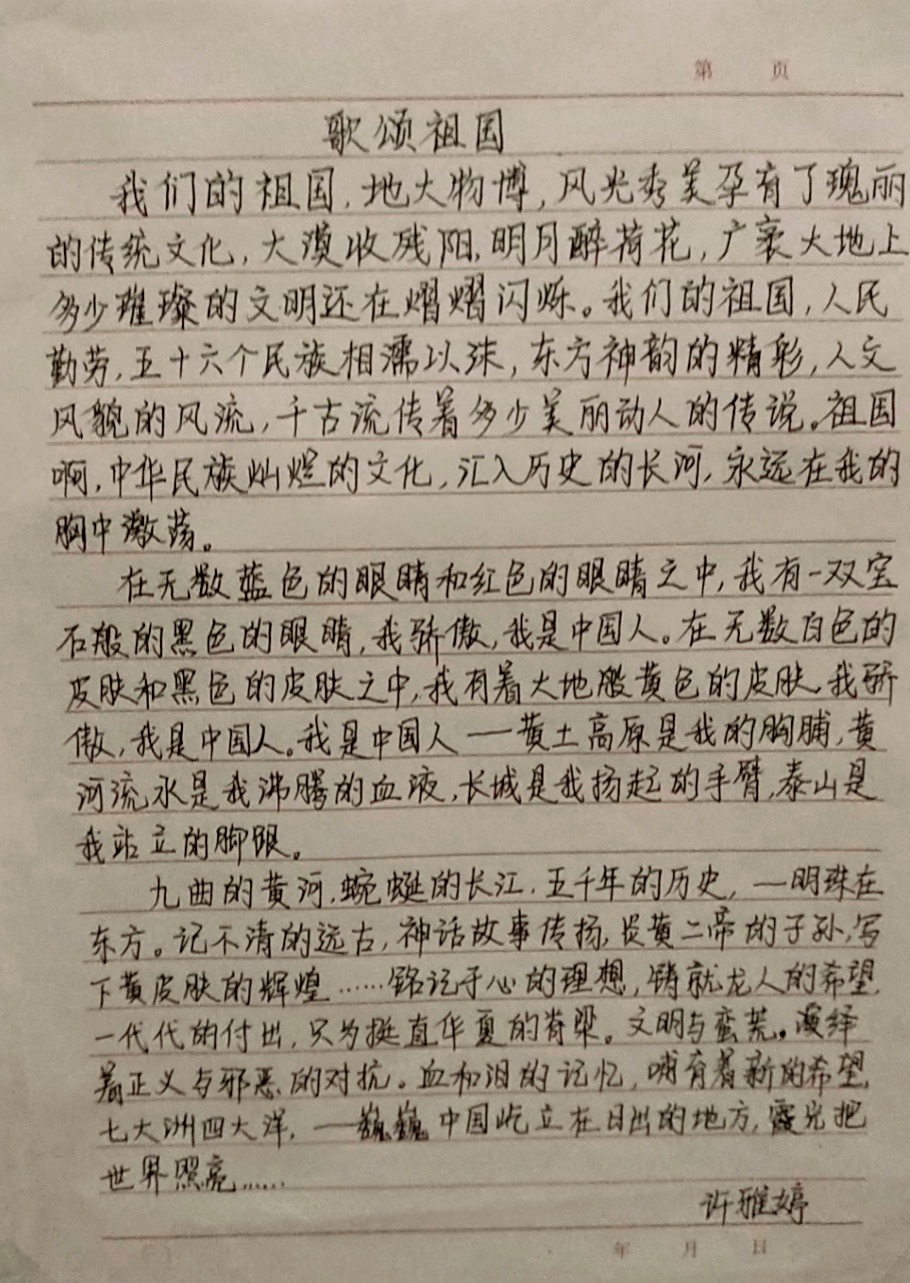 第 页
歌颂祖国
我们的祖国,地大物博,风光秀美孕有了瑰丽
的传统文化,大漠收残阳,明月醉荷花,广袤大地上
多少璀璨的文明还在熠熠闪烁。我们的祖国,人民
勤劳,五十六个民族相濡以沫,东方神韵的精彩,人文
风貌的风流,千古流传着多少美丽动人的传说。祖国
啊,中华民族灿烂的文化,汇入历史的长河,永远在我的
胸中激荡。
在无数蓝色的眼睛和红色的眼睛之中,我有一双宝
石般的黑色的眼睛,我骄傲,我是中国人。在无数白色的
皮肤和黑色的皮肤之中,我有着大地般黄色的皮肤,我骄
傲,我是中国人。我是中国人——黄土高原是我的胸脯,黄
河流水是我沸腾的血液,长城是我扬起的手臂,泰山是
我站立的脚跟。
九曲的黄河,蜿蜒的长江,五千年的历史,—明珠在
东方。记不清的远古,神话故事传扬,炎黄二帝的子孙,写
下黄皮肤的辉煌……铭记于心的理想,铸就龙人的希望,
一代代的付出,只为挺直华夏的脊梁。文明与蛮荒。演绎
着正义与邪恶的对抗。血和泪的记忆,哺育着新的希望,
七大洲四大洋,—巍巍中国屹立在日出的地方,霞光把
世界照亮……
许雅婷
年 月 日